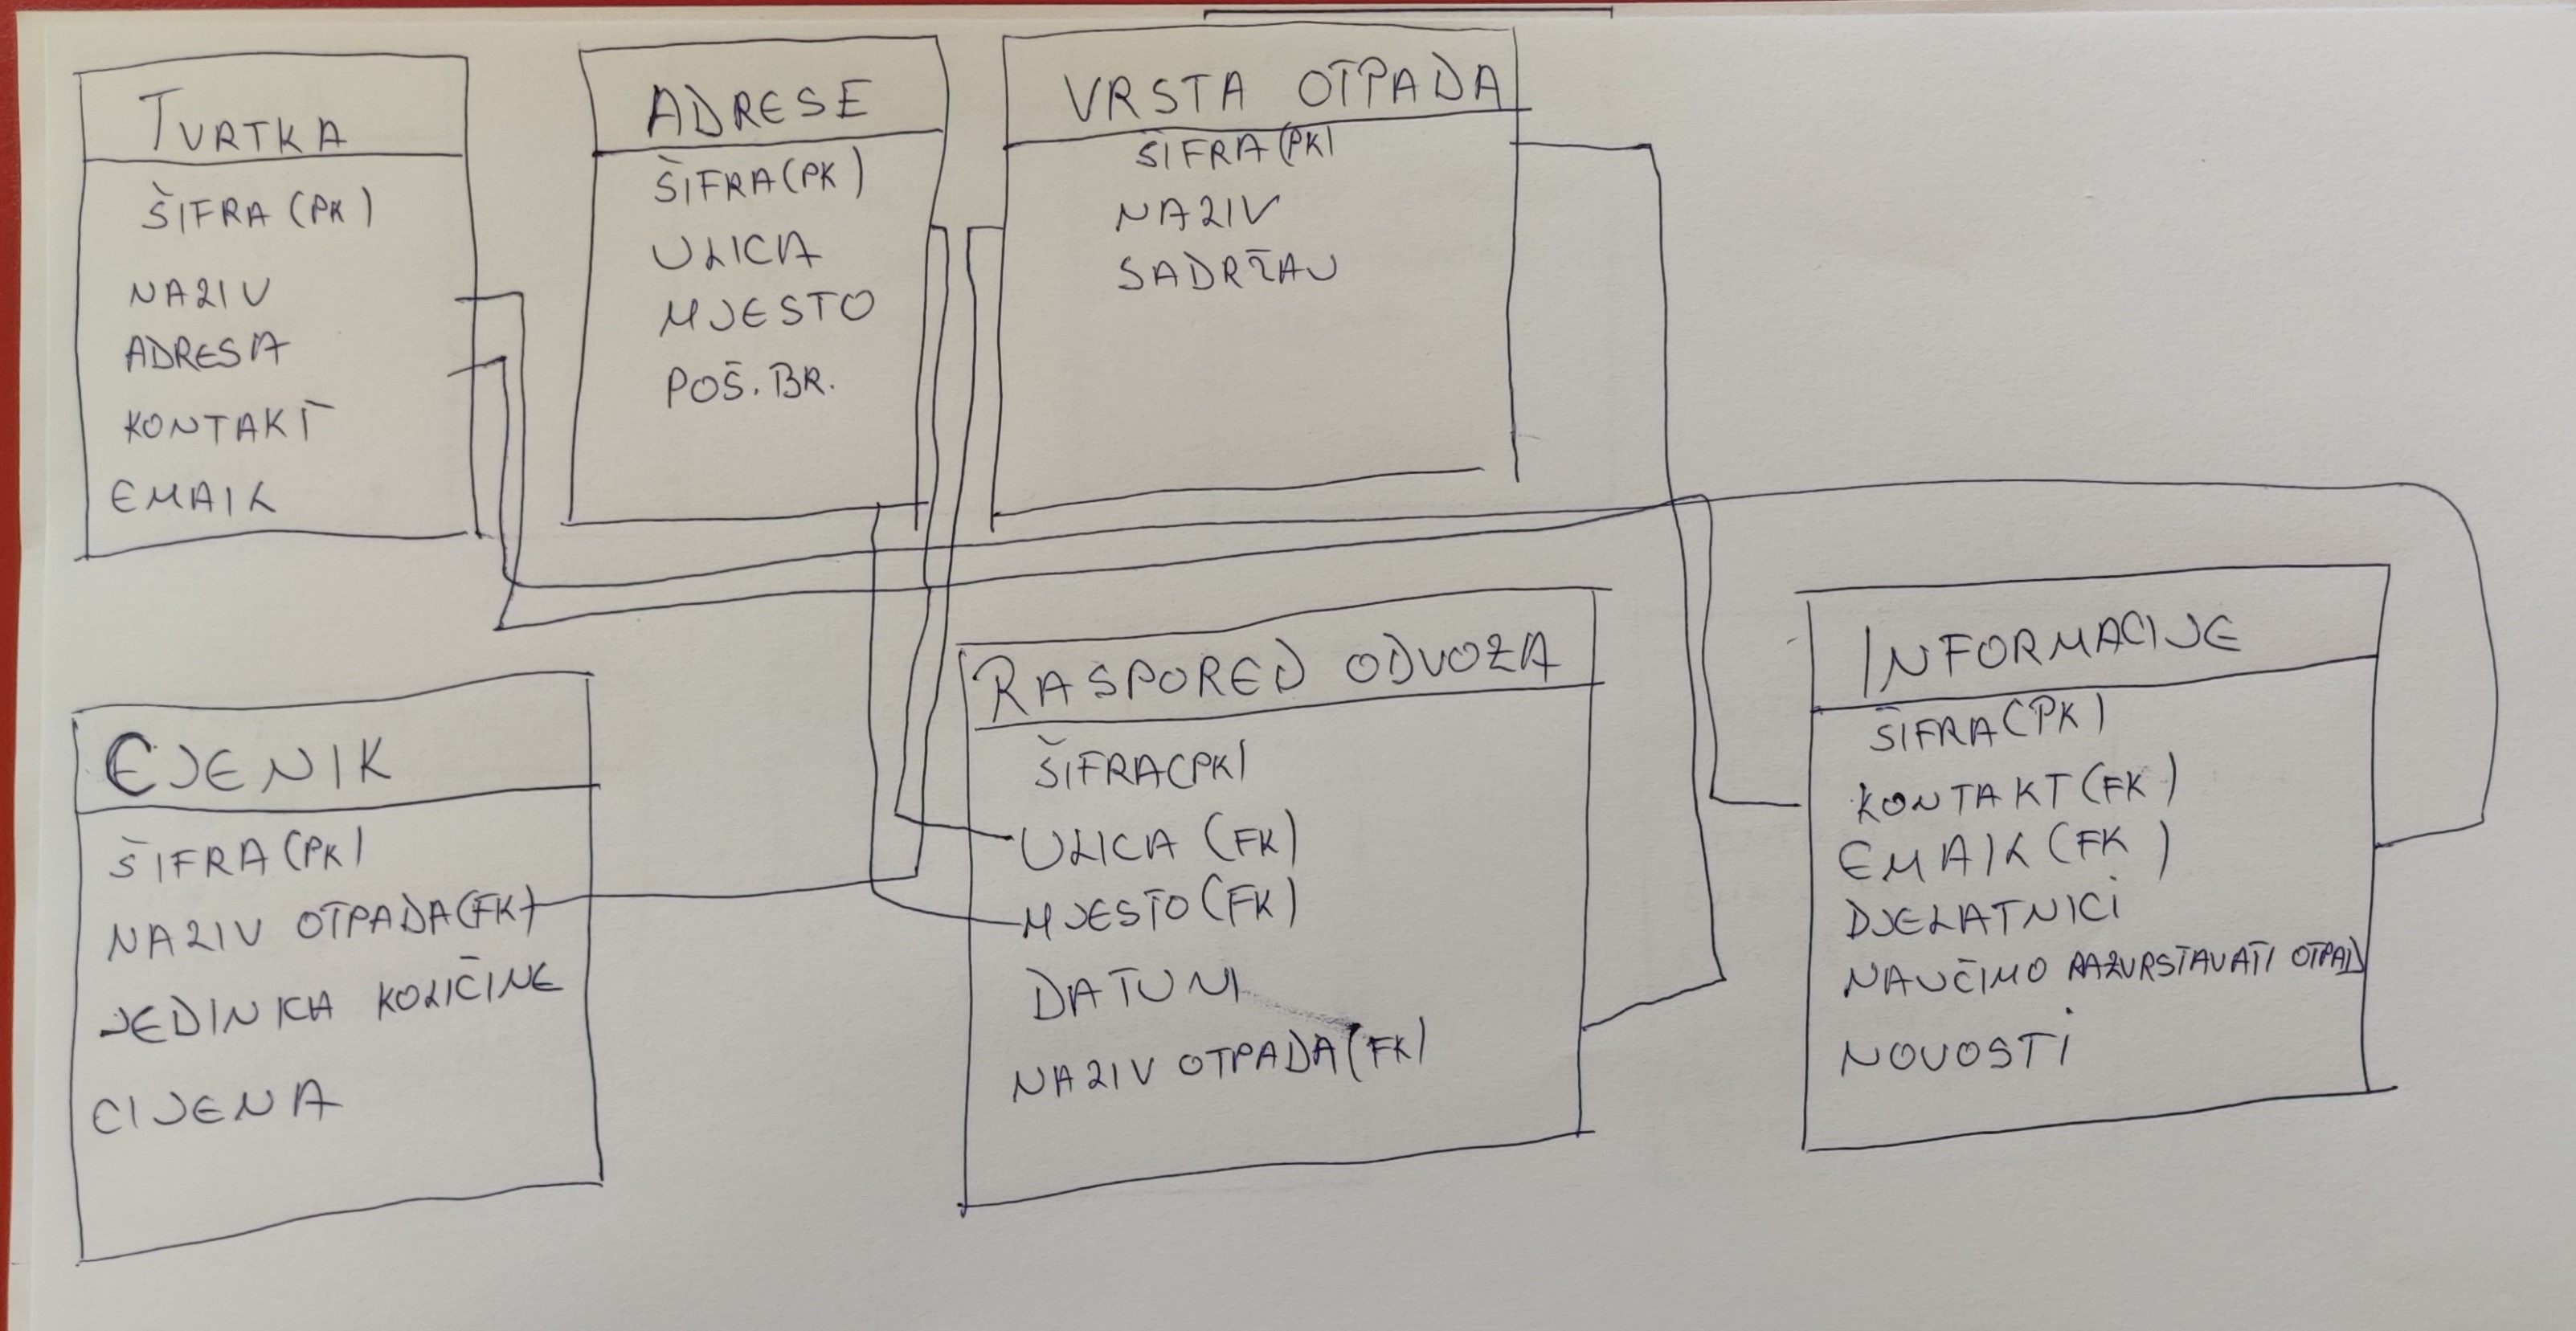 TVRTKA
ŠIFRA (PK)
NAZIV
ADRESA
KONTAKT
EMAIL
ADRESE
ŠIFRA (PK)
ULICA
MJESTO
POŠ. BR.
VRSTA OTPADA
ŠIFRA (PK)
NAZIV
SADRŽAJ
CJENIK
ŠIFRA (PK)
NAZIV OTPADA (FK)
JEDINICA KOLIČINE
CIJENA
RASPORED ODVOZA
ŠIFRA (PK)
ULICA (FK)
MJESTO (FK)
DATUMI
NAZIV OTPADA (FK)
INFORMACIJE
ŠIFRA (PK)
KONTAKT (FK)
EMAIL (FK)
DJELATNICI
NAUČIMO RAZVRSTAVATI OTPAD
NOVOSTI